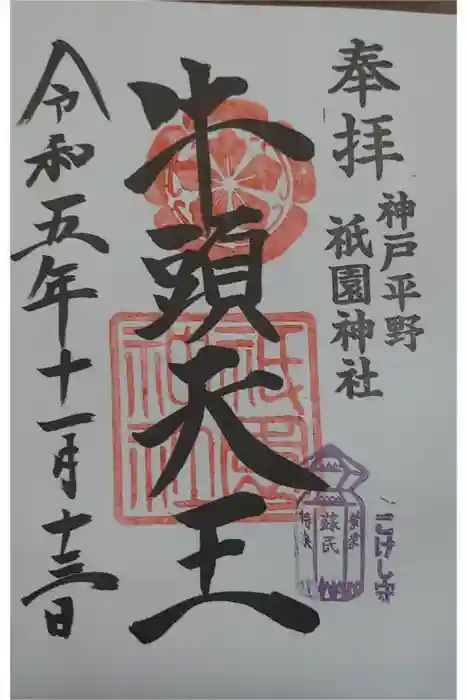 奉拝
神戸平野
祇園神社
牛頭天王
祇園
神社
蘇民
こけし守
令和五年十一月十三日